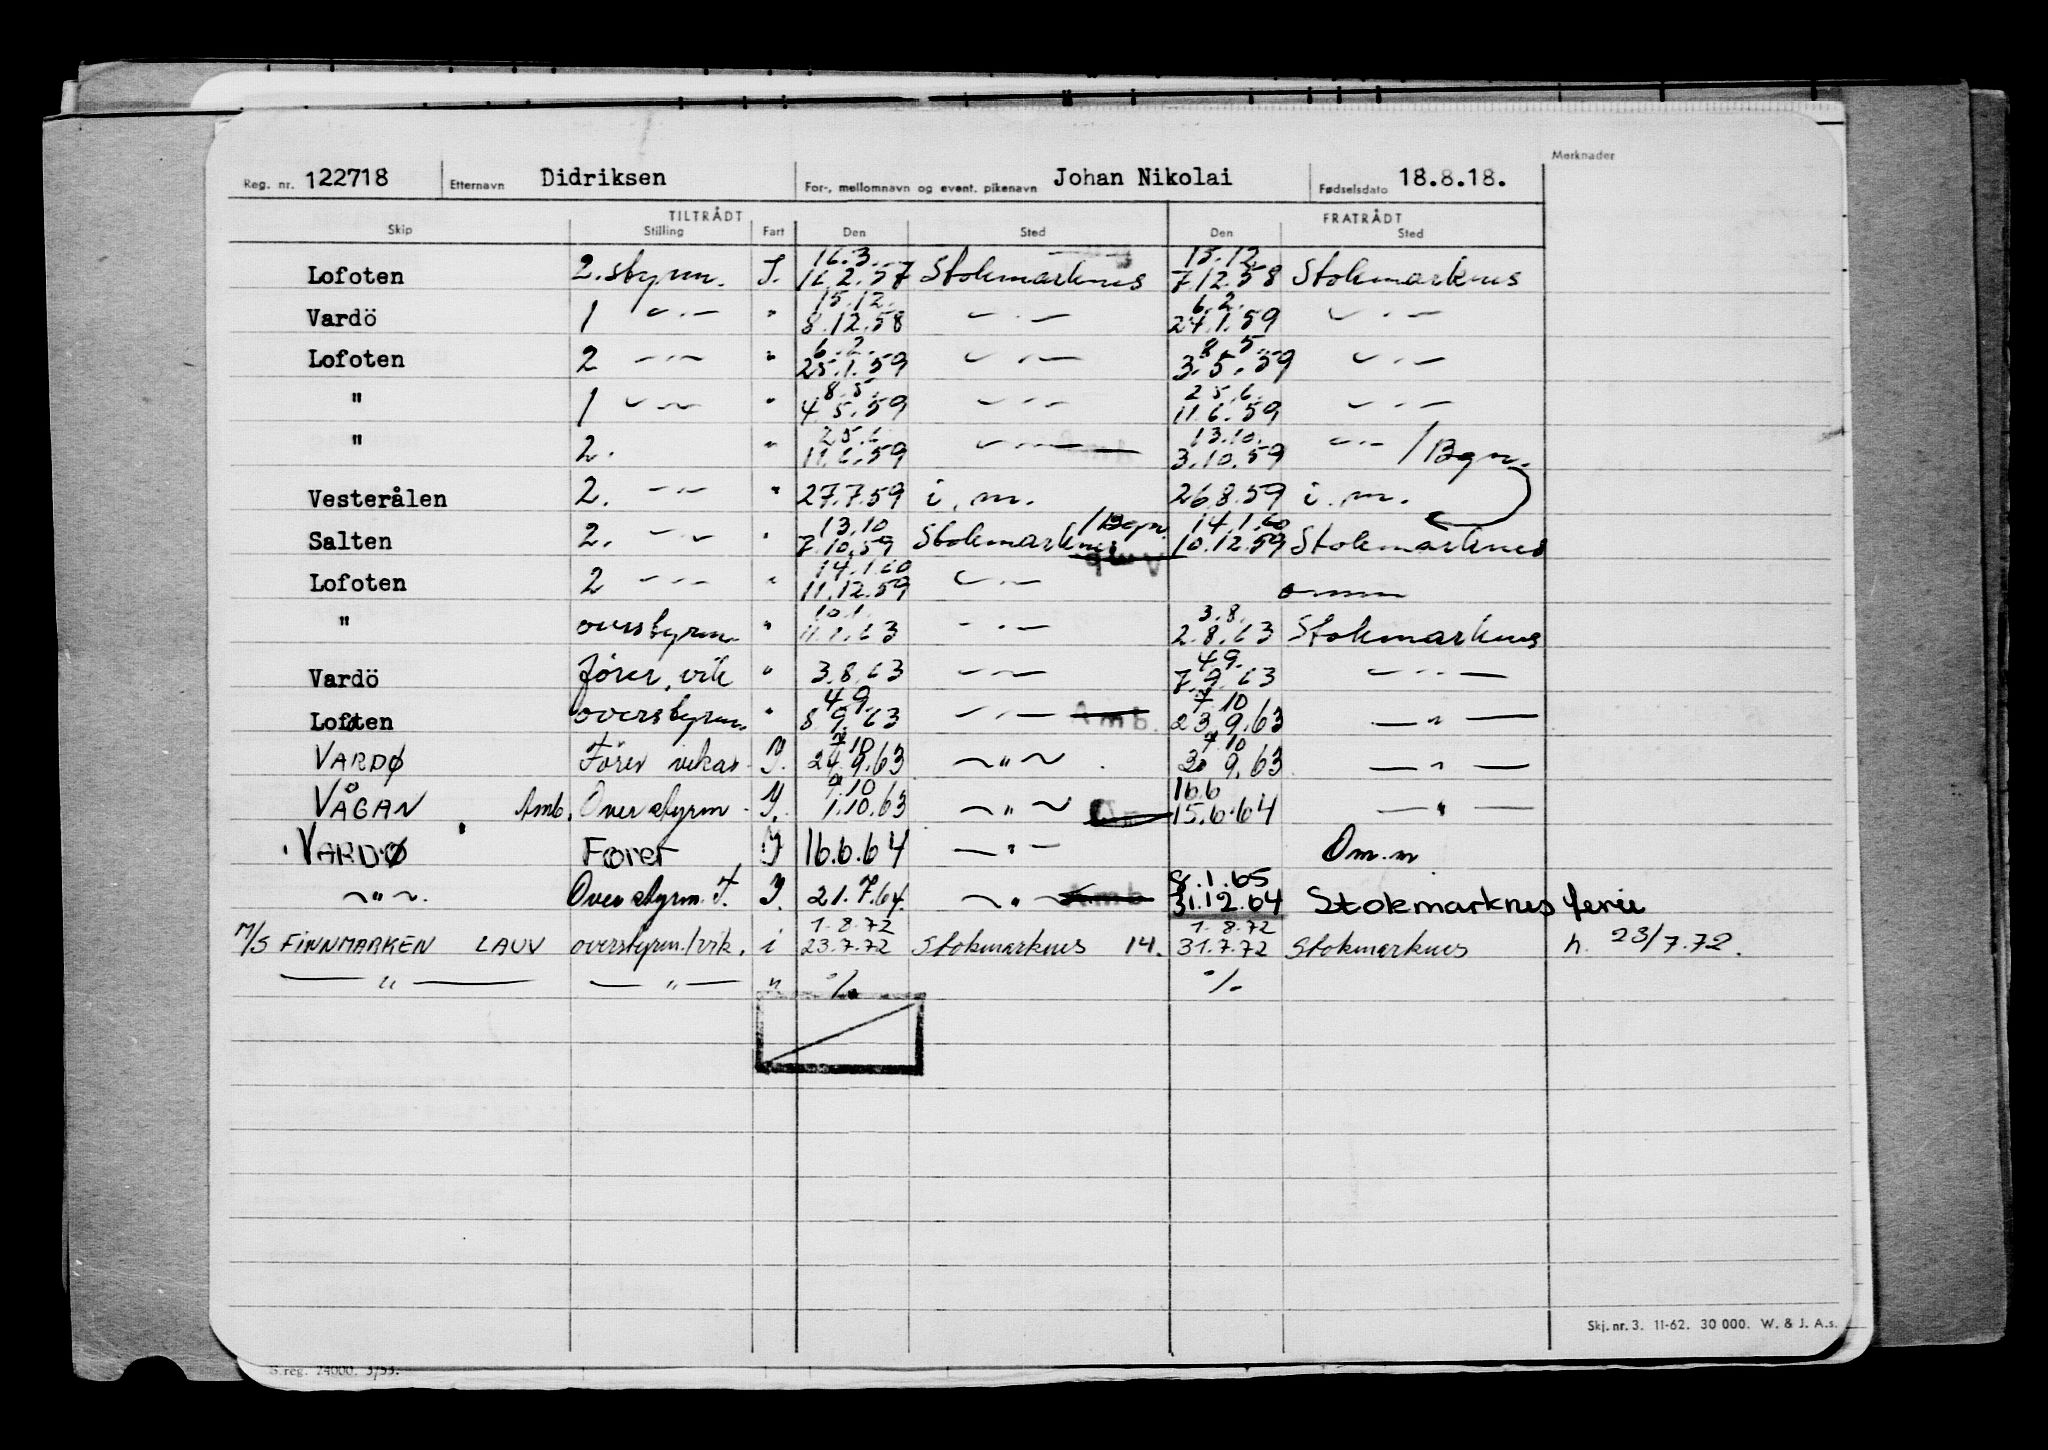 Merknader
Reg. nr. 122718 Etternavn Didriksen For-, mellomnavn og event. pikenavn Johan Nikolai Fødselsdato 18.8.18.
TILTRÅDT FRATRÅDT
Skip Stilling Fart Den Sted Den Sted
16.3. 15.12.
Lofoten 2. styrm. I. 16.2.57 Stokmarknes 7.12.58 Stokmarknes
15.12. 6.2.
Vardö 1 — " — " 8.12.58 — " — 24.1.59 — " —
6.2. 8.5.
Lofoten 2 — " — " 25.1.59 — " — 3.5.59 — " —
8.5. 25.6.
" 1 — " — " 4.5.59 — " — 11.6.59 — " —
25.6. 13.10.
" 2. " 11.6.59 — " — 3.10.59 — " — /Bgn.
Vesterålen 2. — " — " 27.7.59 i. m. 26.8.59 i. m.
13.10 /Bgn. 14.1.60
Salten 2. — " — " 7.10.59 Stokmarknes 10.12.59 Stokmarknes
14.1.60
Lofoten 2 — " — " 11.12.59 — " — omm
10.1. 3.8.
" overstyrm. " 11.1.63 — " — 2.8.63 Stokmarknes
4.9.
Vardö fører, vik " 3.8.63 — " — 7.9.63 — " —
4.9. 7.10
Lofoten overstyrm. " 8.9.63 — " — Amb. 23.9.63 — " —
7.10 7.10
VARDØ Förer vikar I. 24.9.63 — " — 30.9.63 — " —
9.10 16.6
VÅGAN Amb. Overstyrm. I. 1.10.63 — " — 15.6.64 — " —
VARDØ Fører I 16.6.64 — " — Om.m
8.1.65
— " —. Overstyrm. F. I. 21.7.64. — " — Amb 31.12.64 Stokmarknes ferie
1.8.72 1.8.72
M/S FINNMARKEN LAUV overstyrm./vik. i 23.7.72 Stokmarknes 14. 31.7.72 Stokmarknes h. 23/7.72.
— " — — " — " ·/. ·/.
Skj. nr. 3. 11-62. 30 000. W. & J. A.s.
S.reg. 24000. 3/53.